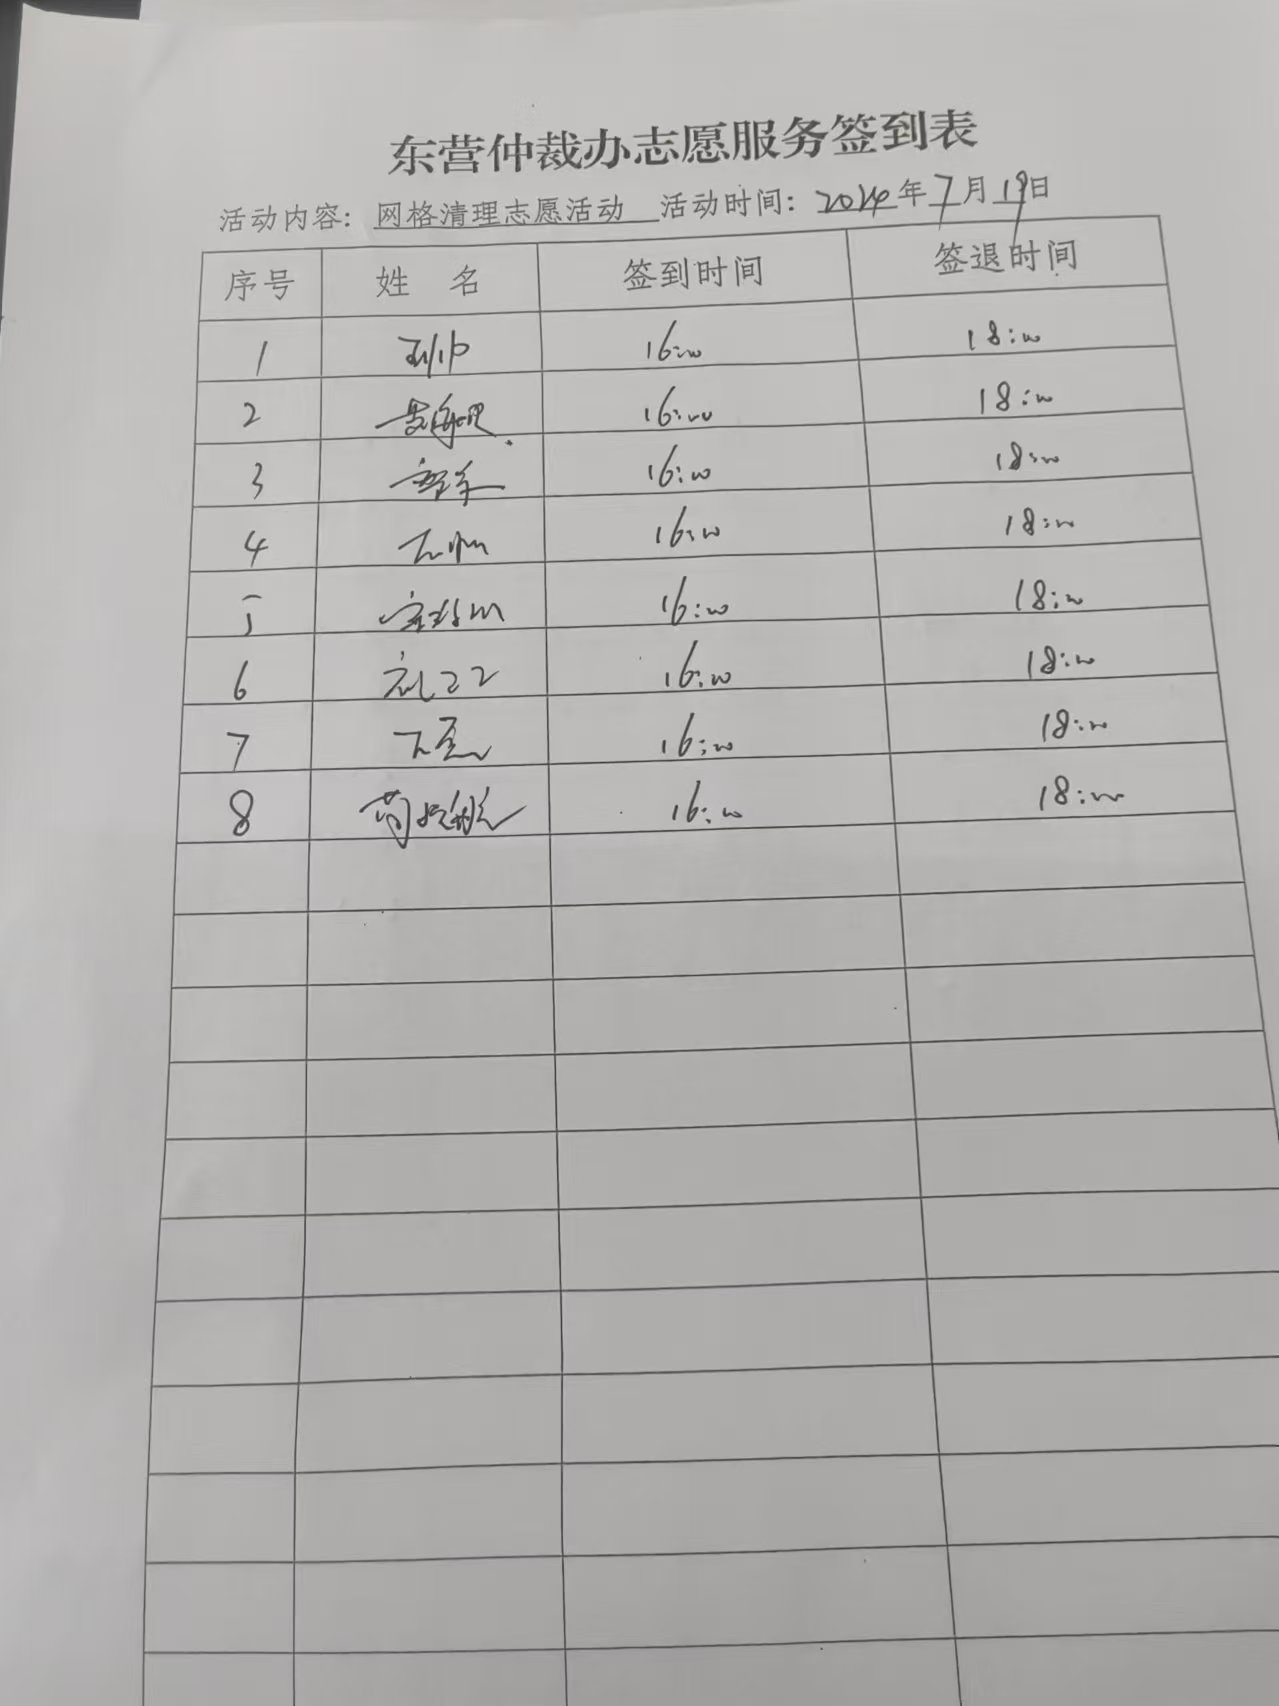 东营仲裁办志愿服务签到表
活动内容: 网格清理志愿活动 活动时间: 2024年7月19日
序号 姓 名 签到时间 签退时间
1 16:00 18:00
2 16:00 18:00
3 16:00 18:00
4 16:00 18:00
5 16:00 18:00
6 16:00 18:00
7 16:00 18:00
8 16:00 18:00